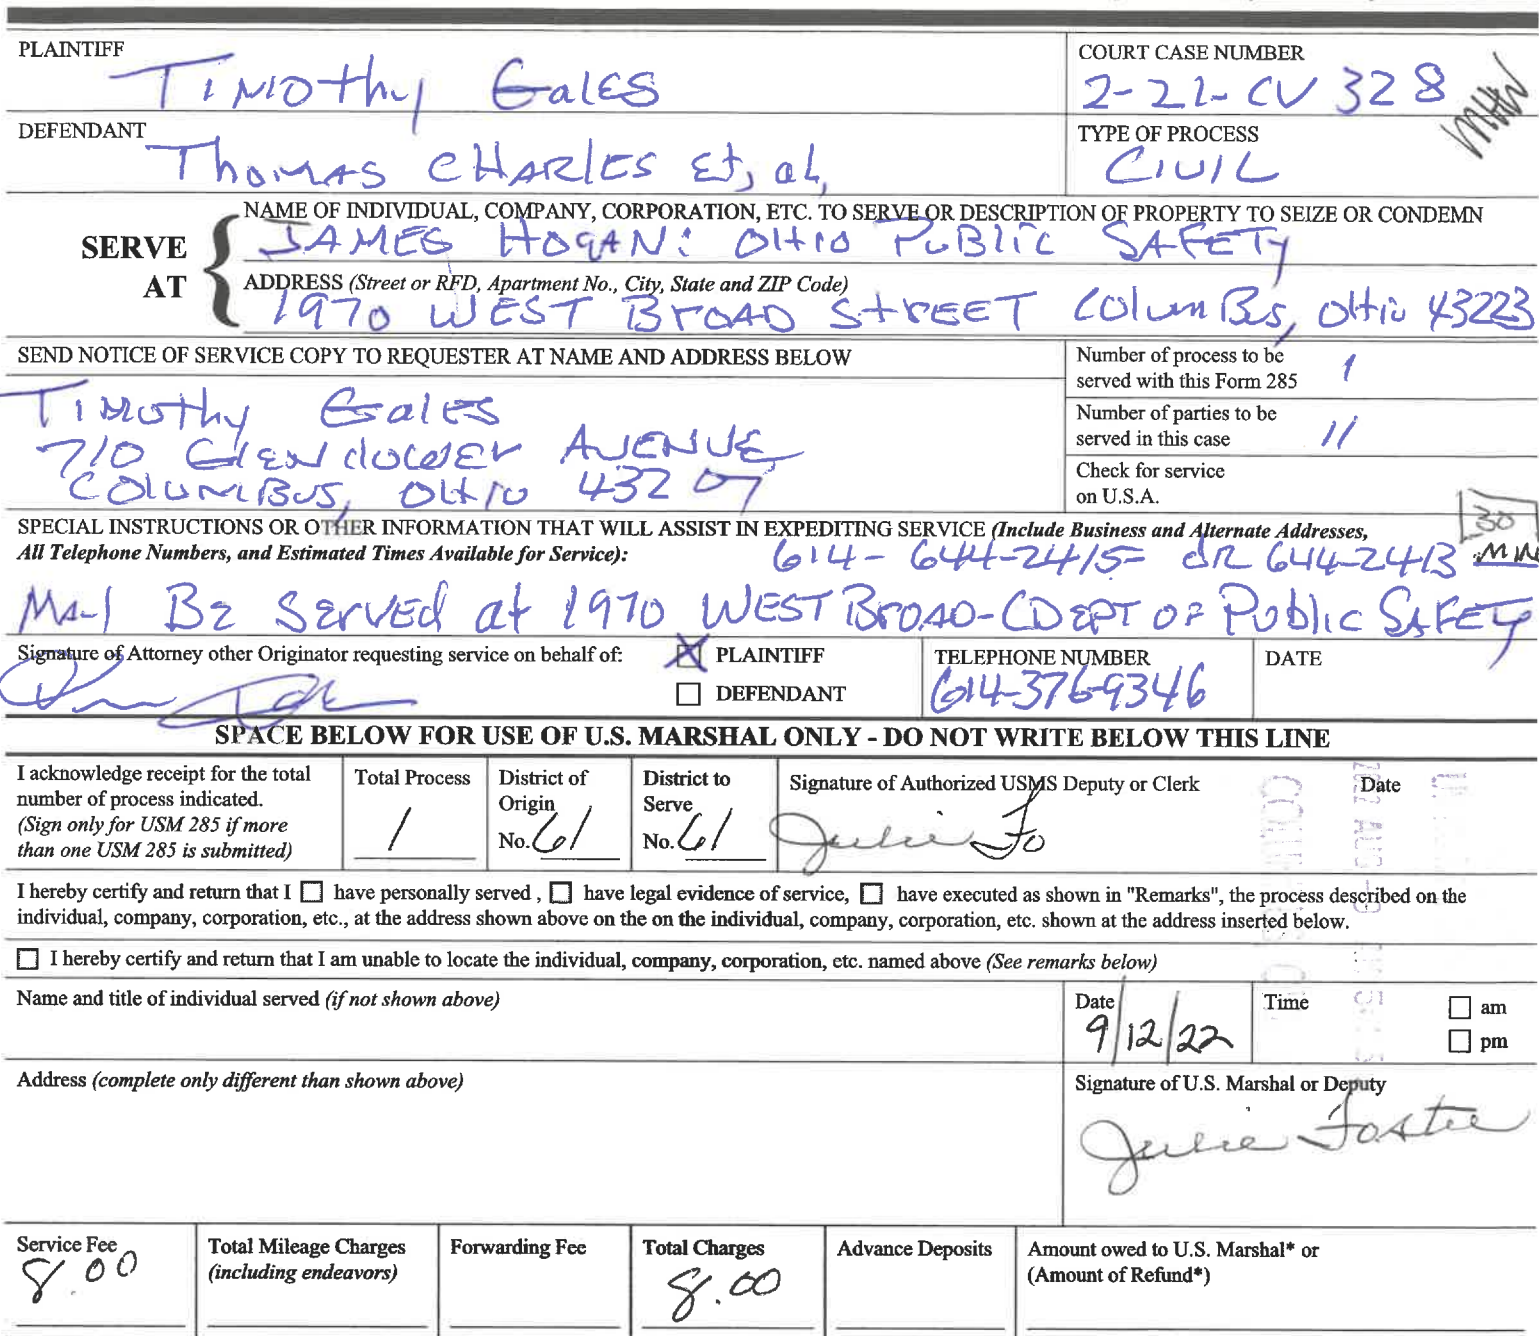 PLAINTIFF
TIMOthy GalES
COURT CASE NUMBER
2-21-CV 328
DEFENDANT
ThomAS CHARlES Et, al,
TYPE OF PROCESS
CIVIL
SERVE AT
NAME OF INDIVIDUAL, COMPANY, CORPORATION, ETC. TO SERVE OR DESCRIPTION OF PROPERTY TO SEIZE OR CONDEMN
JAMES HOGAN: OHIO PUBLIC SAFETY
ADDRESS (Street or RFD, Apartment No., City, State and ZIP Code)
1970 WEST BROAD STREET ColumBus, OHio 43223
SEND NOTICE OF SERVICE COPY TO REQUESTER AT NAME AND ADDRESS BELOW
TIMOthy Gales
710 GlENdowER AVENUE
COLUMBUS, OHIO 43207
Number of process to be served with this Form 285 1
Number of parties to be served in this case 11
Check for service on U.S.A.
SPECIAL INSTRUCTIONS OR OTHER INFORMATION THAT WILL ASSIST IN EXPEDITING SERVICE (Include Business and Alternate Addresses,
All Telephone Numbers, and Estimated Times Available for Service):
30
614-644-2415 OR 644-2413
BE SERVEd at 1970 WEST BROAD-DEPT OF Public SAFETY
Signature of Attorney other Originator requesting service on behalf of:
PLAINTIFF
DEFENDANT
TELEPHONE NUMBER
614-376-9346
DATE
SPACE BELOW FOR USE OF U.S. MARSHAL ONLY - DO NOT WRITE BELOW THIS LINE
I acknowledge receipt for the total
number of process indicated.
(Sign only for USM 285 if more
than one USM 285 is submitted)
Total Process
1
District of Origin
No. 61
District to Serve
No. 61
Signature of Authorized USMS Deputy or Clerk
Julie Fo
Date
I hereby certify and return that I have personally served , have legal evidence of service, have executed as shown in "Remarks", the process described on the
individual, company, corporation, etc., at the address shown above on the on the individual, company, corporation, etc. shown at the address inserted below.
I hereby certify and return that I am unable to locate the individual, company, corporation, etc. named above (See remarks below)
Name and title of individual served (if not shown above)
Date
9/12/22
Time
am
pm
Address (complete only different than shown above)
Signature of U.S. Marshal or Deputy
Julie Foster
Service Fee
8.00
Total Mileage Charges
(including endeavors)
Forwarding Fee
Total Charges
8.00
Advance Deposits
Amount owed to U.S. Marshal* or
(Amount of Refund*)